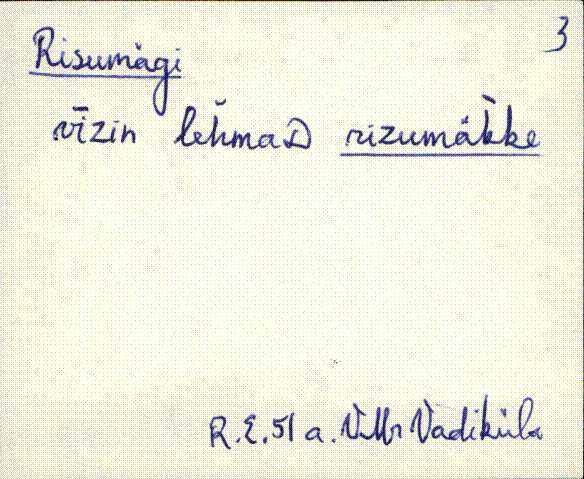 3
Risumägi
vīzin leh̆maD rizumäk̀ke
R.E. 51 a. VMr Vadiküla